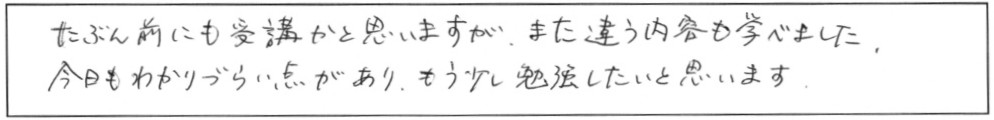 たぶん前にも受講かと思いますが、また違う内容も学べました、
今日もわかりづらい点があり、もう少し勉強したいと思います.